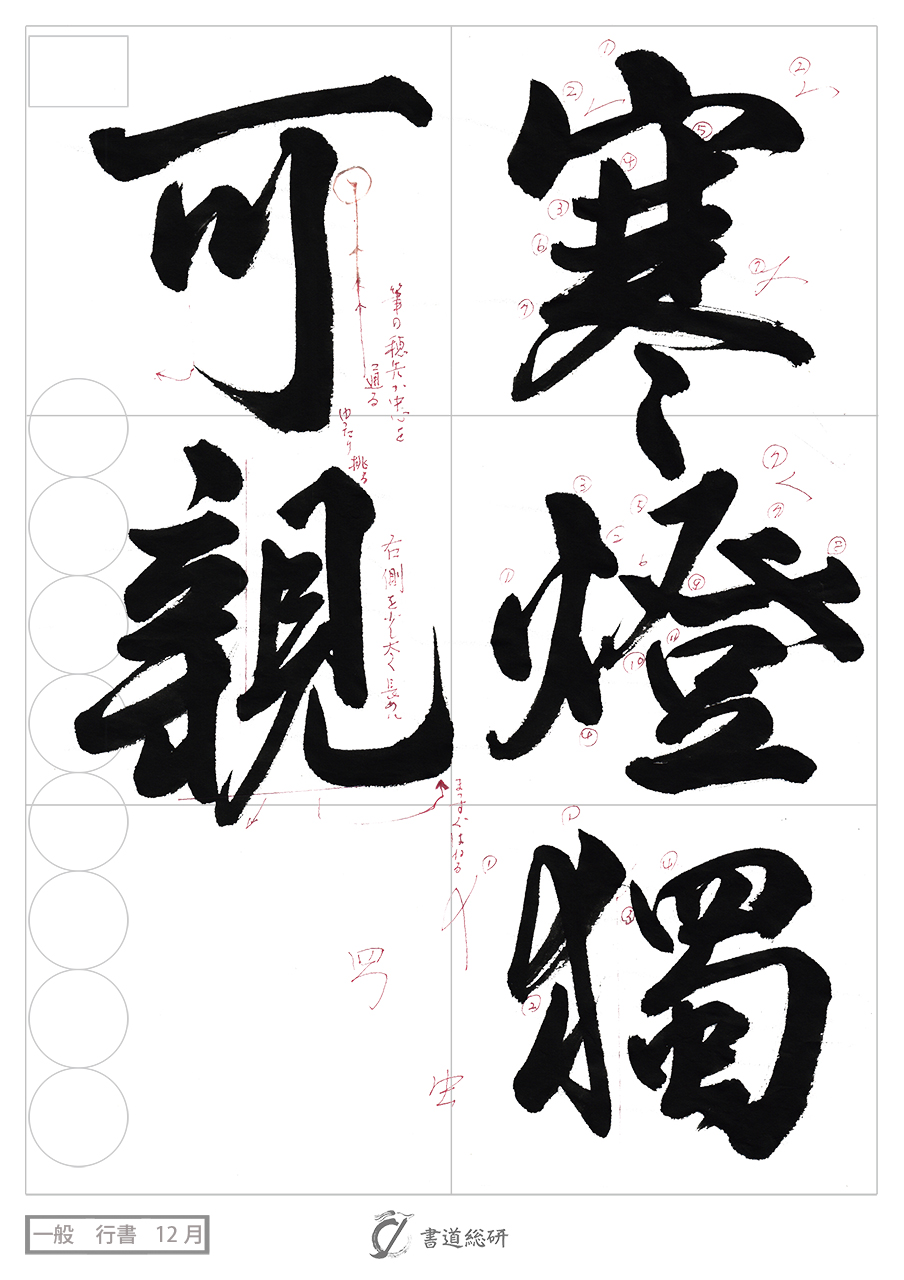 寒燈獨
可親
筆の穂先が中心を
通る
ゆったり挑る
右側を少し太く長めに
まっすぐはねる
一般 行書 12月
書道総研